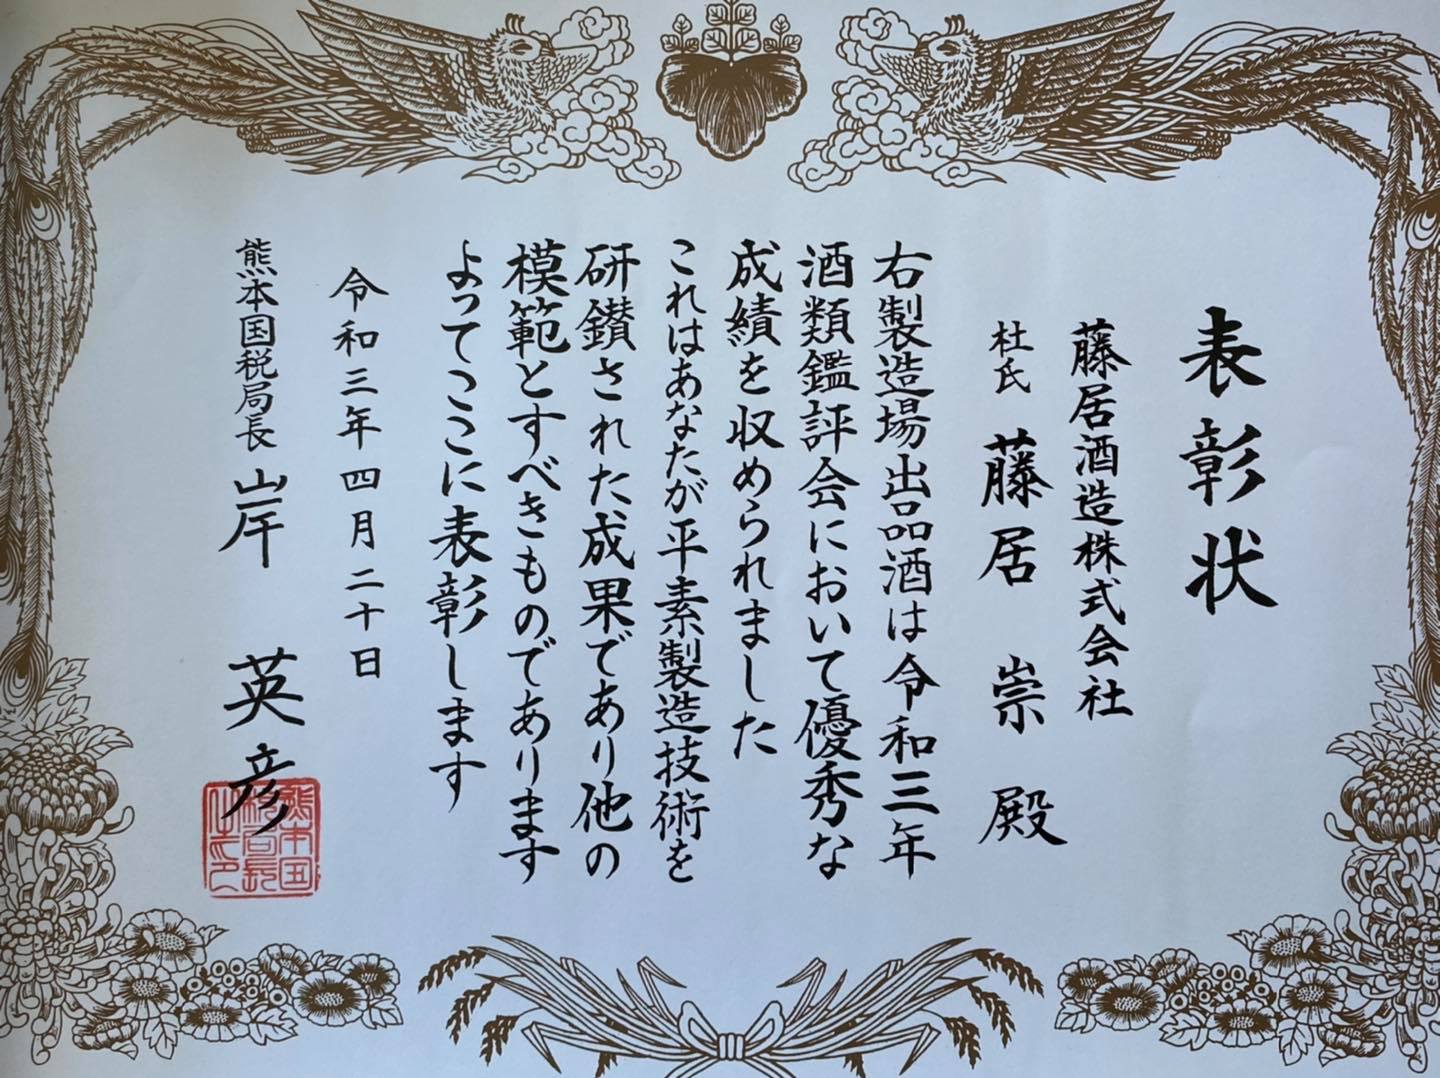 表彰状
藤居酒造株式会社
杜氏 藤居 崇 殿
右製造場出品酒は令和三年
酒類鑑評会において優秀な
成績を収められました
これはあなたが平素製造技術を
研鑽された成果であり他の
模範とすべきものであります
よってここに表彰します
令和三年四月二十日
熊本国税局長 岸 英彦
熊本国
税局長
之印